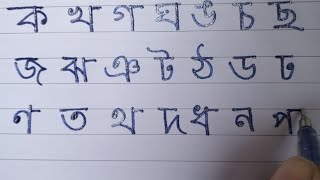 ক খ গ ঘ ঙ চ ছ
জ ঝ ঞ ট ঠ ড ঢ
ণ ত থ দ ধ ন প